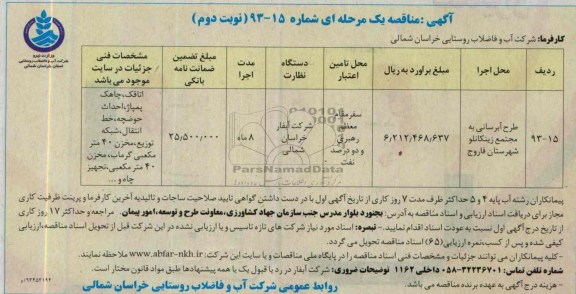 آگهی :مناقصه یک مرحله ای شماره ۱۵-۹۳ (نوبت دوم)
کارفرما: شرکت آب و فاضلاب روستایی خراسان شمالی
وزارت نیرو
شرکت آب و فاضلاب روستایی
استان خراسان شمالی
ردیف
محل اجرا
مبلغ براورد به ریال
محل تامین اعتبار
دستگاه نظارت
مدت اجرا
مبلغ تضمین ضمانت نامه بانکی
مشخصات فنی / جزئیات در سایت موجود می باشد
۹۳-۱۵
طرح آبرسانی به مجتمع زینکانلو شهرستان فاروج
۶٫۲۱۲٫۴۶۸٫۶۳۷
سفر مقام معظم رهبری و دو درصد نفت
شرکت آبفار خراسان شمالی
۸ ماه
۲۵٫۵۰۰٫۰۰۰
اتاقک، چاهک پمپاژ، احداث حوضچه، خط انتقال، شبکه توزیع، مخزن ۴۰ متر مکعبی گرماب، مخزن ۴۰ متر مکعبی، تجهیز چاه و ...
ParsNamadData
پیمانکاران رشته آب پایه ۴ و ۵ حداکثر ظرف مدت ۷ روز کاری از تاریخ آگهی اول با در دست داشتن گواهی تایید صلاحیت ساجات و تائیدیه آخرین کارفرما و پرینت ظرفیت کاری
مجاز برای دریافت اسناد ارزیابی و اسناد مناقصه به آدرس: بجنورد بلوار مدرس جنب سازمان جهاد کشاورزی، معاونت طرح و توسعه، امور پیمان. مراجعه و حداکثر ۱۷ روز کاری
از تاریخ درج آگهی اول نسبت به عودت اسناد اقدام نمایید. - تبصره: اسناد مورد نیاز شرکت های تازه تاسیس و یا ارزیابی نشده در این شرکت قبل از تحویل اسناد مناقصه، ارزیابی
کیفی شده و پس از کسب نمره ارزیابی (۶۵) اسناد مناقصه تحویل می گردد.
- کلیه پیمانکاران می توانند جزئیات و مشخصات فنی اسناد مناقصه را در پایگاه ملی مناقصات و یا سایت این شرکت: www.abfar-nkh.ir ملاحظه نمایند.
شماره تلفن تماس: ۳۲۲۳۶۷۰۱-۰۵۸ داخلی ۱۱۶۲ توضیحات ضروری: شرکت آبفار در رد یا قبول یک یا همه پیشنهادها طبق مواد قانون مختار است.
- هزینه درج آگهی به عهده برنده مناقصه می باشد.
روابط عمومی شرکت آب و فاضلاب روستایی خراسان شمالی